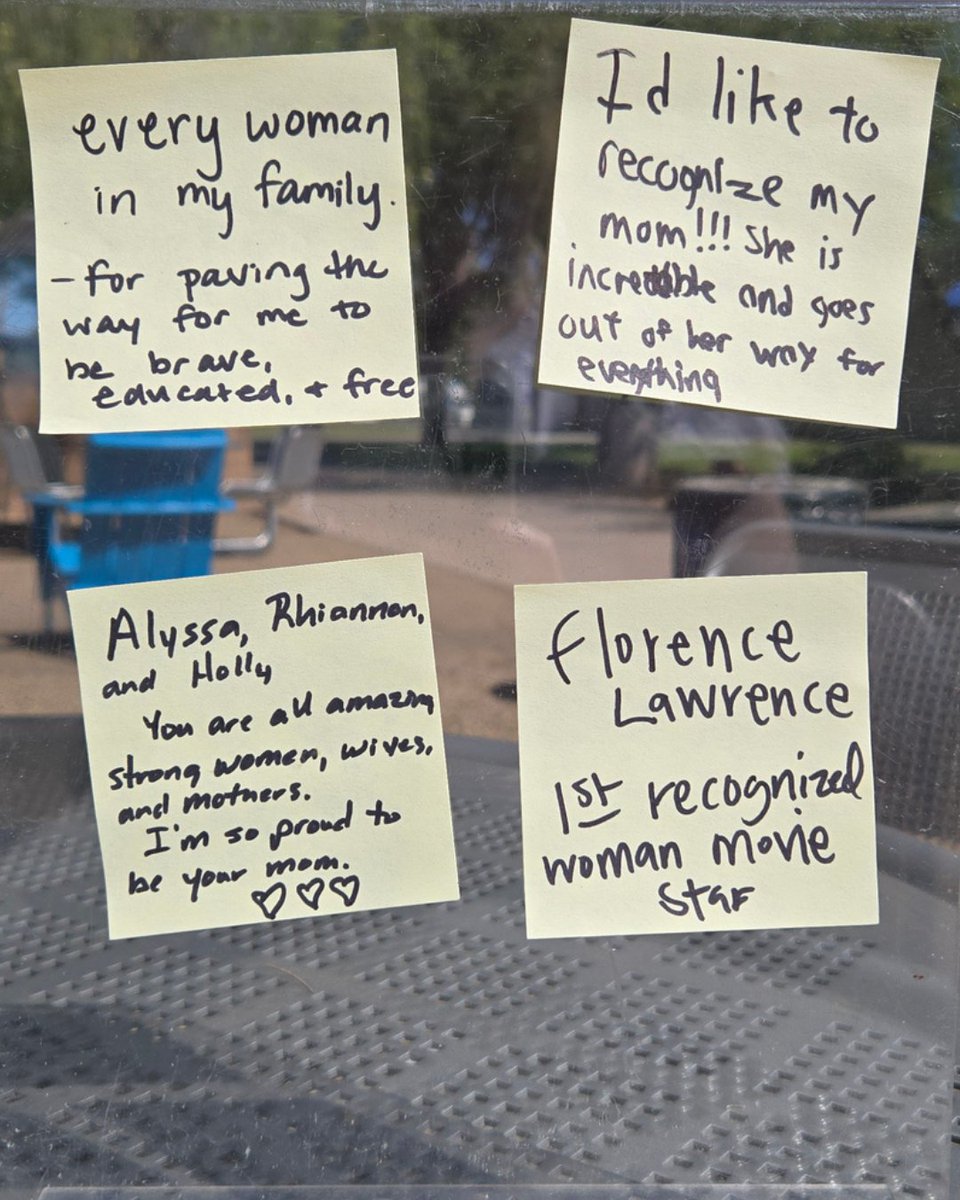 every woman
in my family.
- for paving the
way for me to
be brave,
educated, + free
I'd like to
recognize my
mom!!! She is
incredible and goes
out of her way for
everything
Alyssa, Rhiannon,
and Holly
You are all amazing
strong women, wives,
and mothers.
I'm so proud to
be your mom.
♡♡♡
Florence
Lawrence
1st recognized
woman movie
star